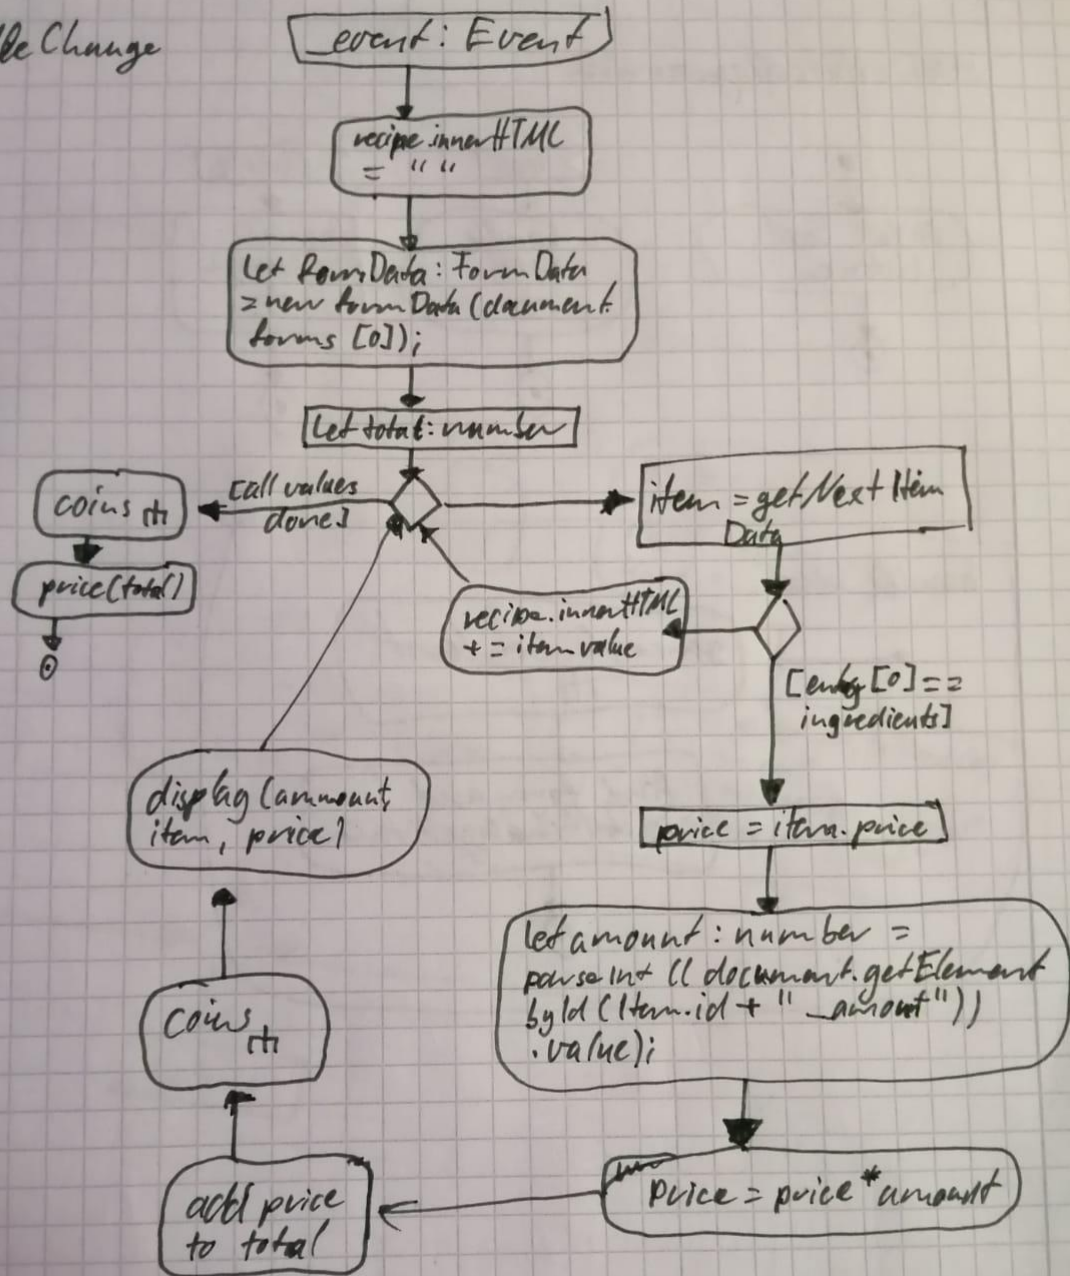 Change
_event: Event
recipe.innerHTML
= " "
Let formData: FormData
= new formData (document.
forms [0]);
Let total: number
[all values
done]
coins
price(total)
item = getNext Item
Data
recipe.innerHTML
+= item value
[entry [0] ==
ingredients]
display (ammount,
item, price)
price = item.price
let amount : number =
parseInt (( document.getElement
byId (Item.id + "_amont"))
.value);
coins
price = price * amount
add price
to total